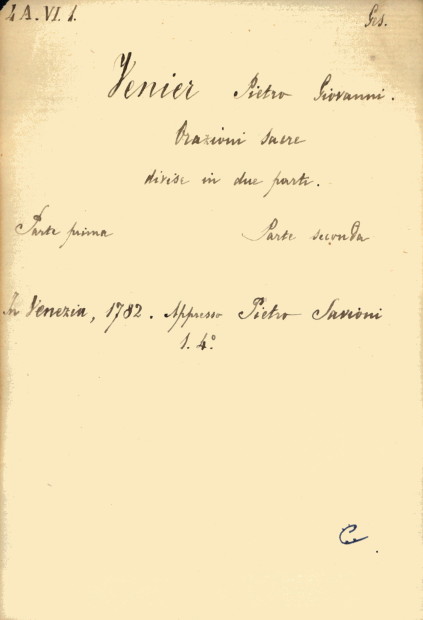 4 A. VI. 1. Ges.
Venier Pietro Giovanni.
Orazioni sacre
divise in due parti.
Parte prima Parte seconda
In Venezia, 1782. Appresso Pietro Savioni
1. 4°
C